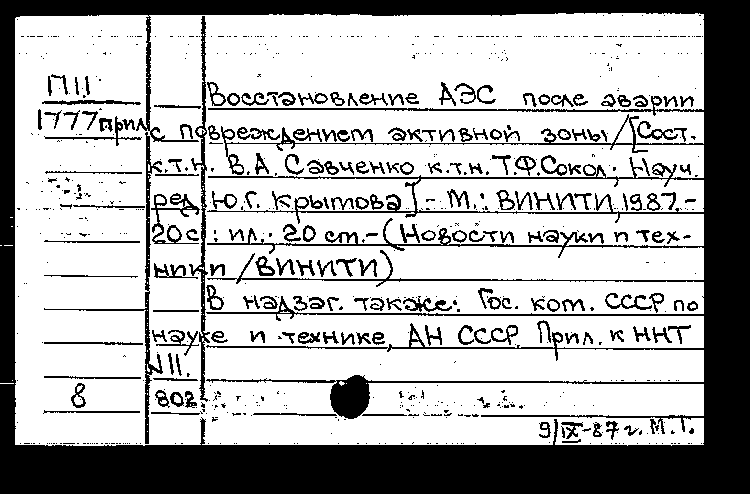 П11
1777прил
Восстановление АЭС после аварии
с повреждением активной зоны /[Сост.
к.т.н. В.А. Савченко, к.т.н. Т.Ф.Сокол; Науч.
ред. Ю.Г. Крымова]. - М.: ВИНИТИ, 1987.-
20с.: ил.; 20 ст.-(Новости науки и тех-
ники /ВИНИТИ)
В надзаг. также: Гос. ком. СССР по
науке и технике, АН СССР. Прил. к ННТ
N11.
8 802
9/IX-87 г. М.Т.